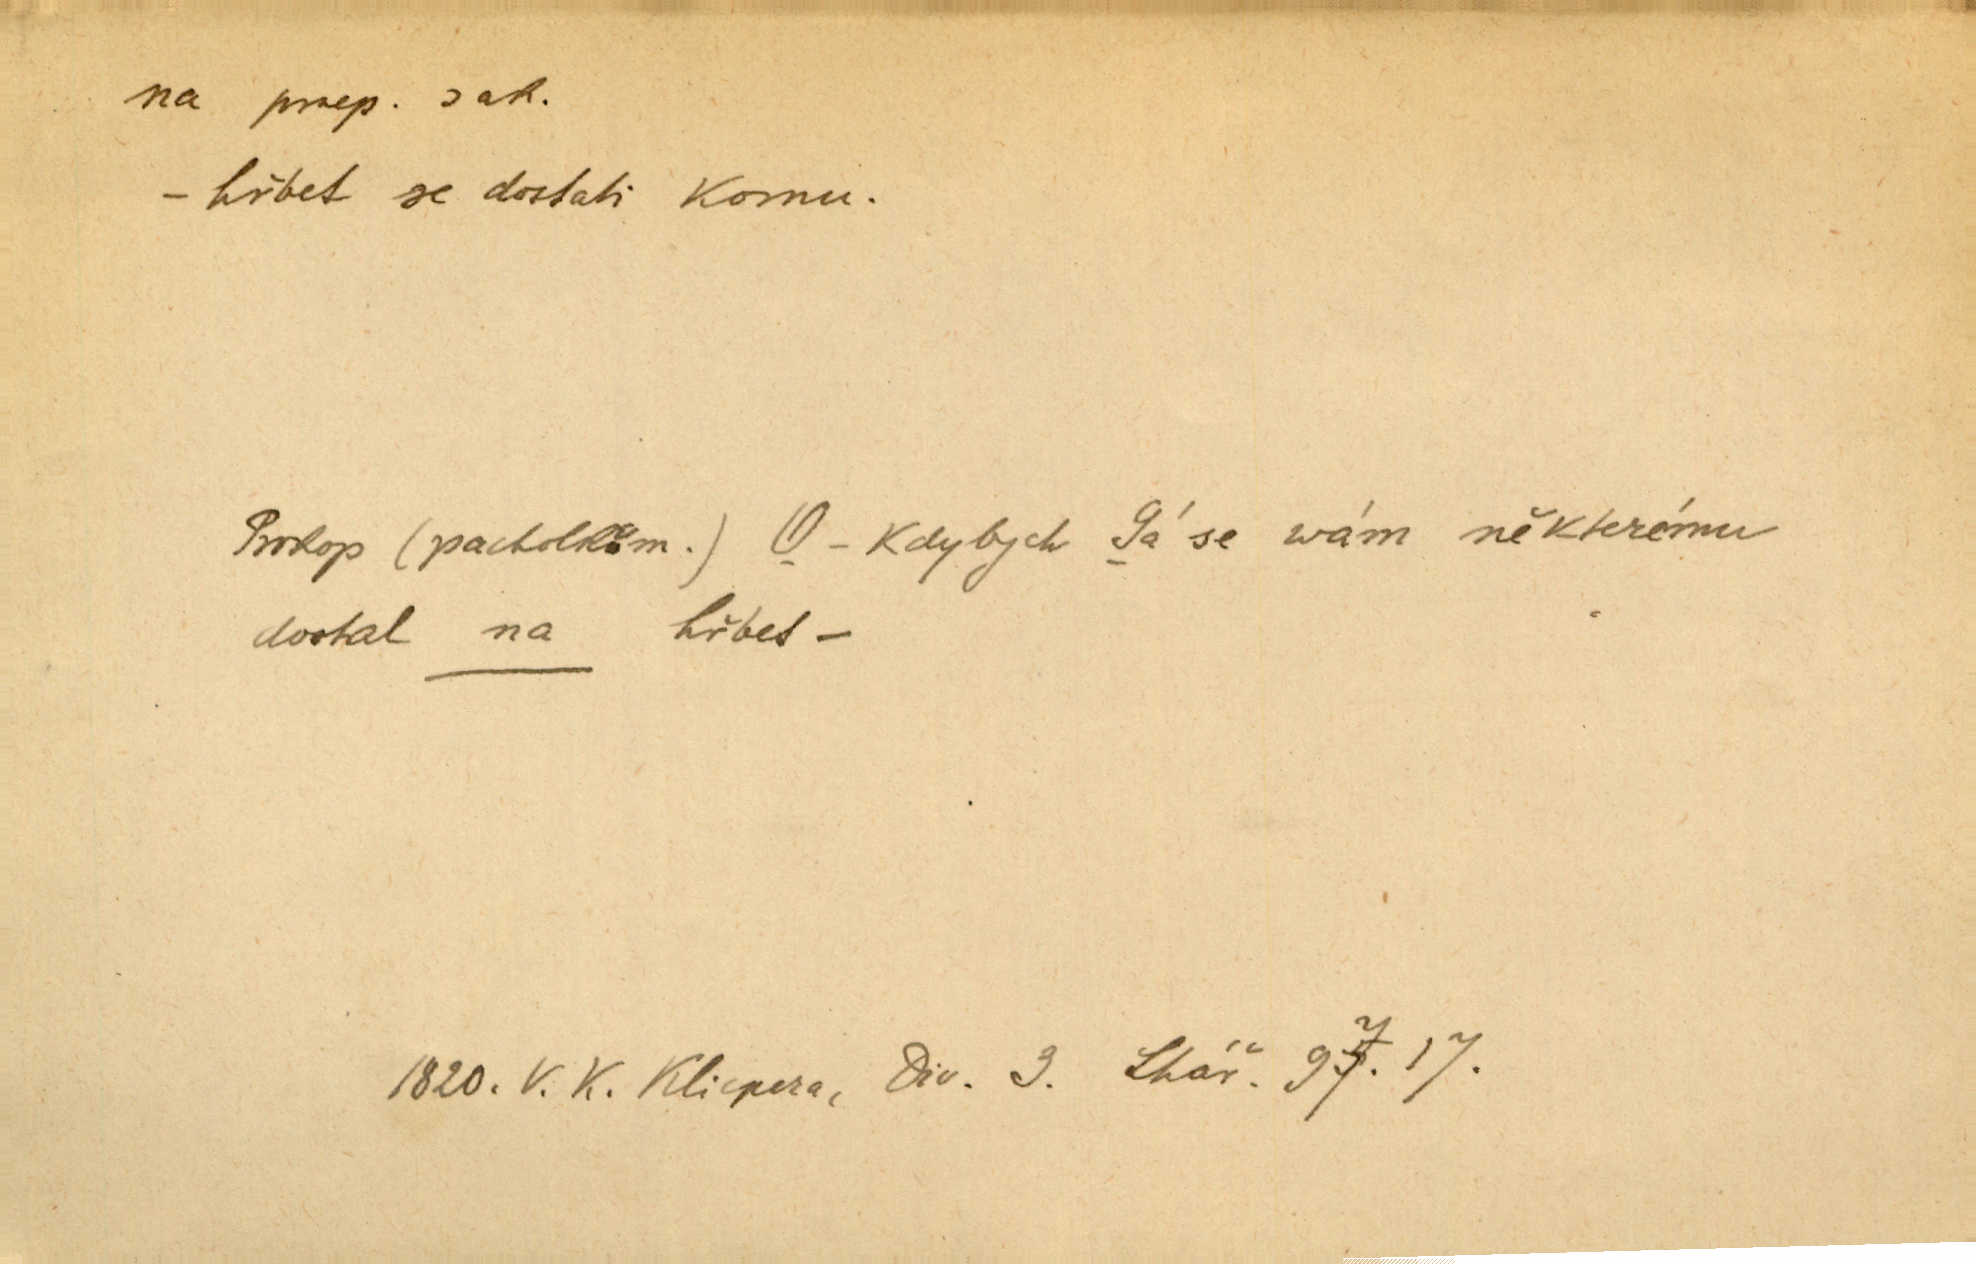 na praep. s ak.
- hřbet se dostati komu.
Prokop (pacholkům.) O - kdybych Gá se wám některému
dostal na hřbet -
1820. V. K. Klicpera, Div. 3. Lhář. 97. 17.